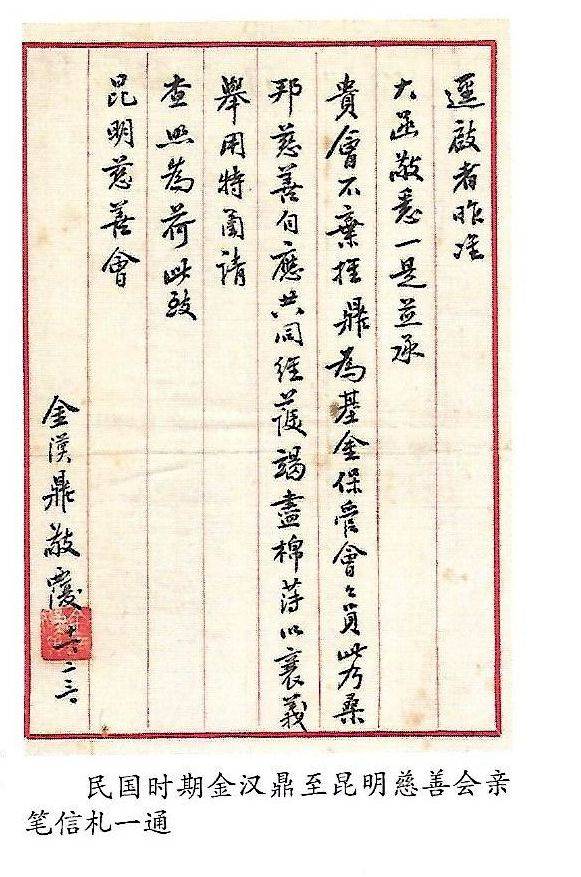 逕啟者昨准
大函敬悉一是並承
貴會不棄推鼎為基金保管會々員此乃桑
邦慈善自應共同維護竭盡棉薄以襄義
舉用特函請
查照為荷此致
昆明慈善會
金漢鼎敬覆
民国时期金汉鼎至昆明慈善会亲
笔信札一通